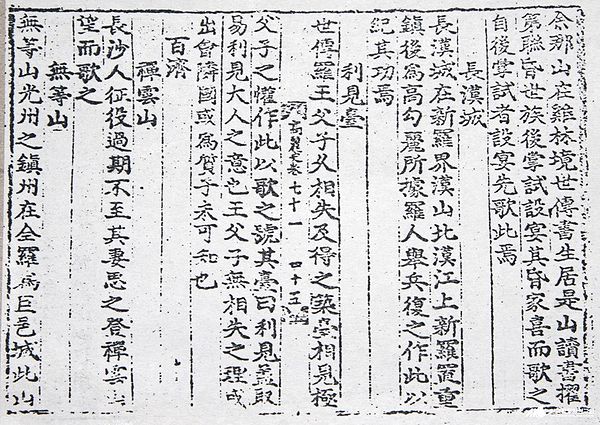 余那山在雞林境世傳書生居是山讀書擢
第聯昏世族後掌試設宴其昏家喜而歌之
自後掌試者設宴先歌此焉
長漢城
長漢城在新羅界漢山北漢江上新羅置重
鎮後爲高勾麗所據羅人舉兵復之作此以
紀其功焉
利見臺
世傳羅王父子久相失及得之築臺相見極
高麗史卷七十一 四十五
父子之懽作此以歌之號其臺曰利見蓋取
易利見大人之意也王父子無相失之理或
出會隣國或爲質子未可知也
百濟
禪雲山
長沙人征役過期不至其妻思之登禪雲山
望而歌之
無等山
無等山光州之鎮州在全羅爲巨邑城此山